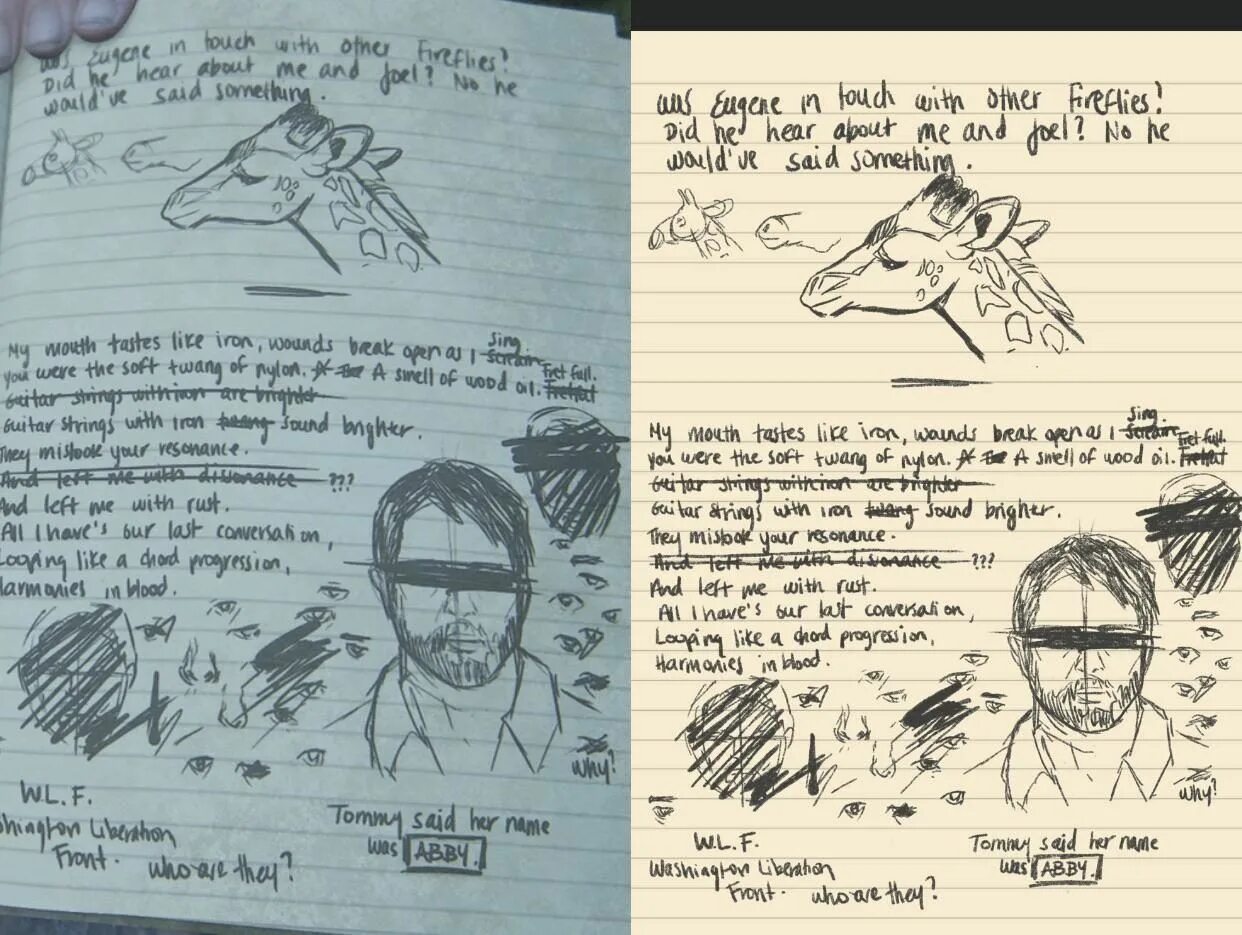 was Eugene in touch with other Fireflies?
Did he hear about me and Joel? No he
would've said something.
My mouth tastes like iron, wounds break open as I scream sing
you were the soft twang of nylon. A smell of wood oil. Fretfull.
Guitar strings with iron are brighter
Guitar strings with iron twang sound brighter.
They mistook your resonance.
And left me with dissonance ???
And left me with rust.
All I have's our last conversation,
Looping like a chord progression,
Harmonies in blood.
why?
W.L.F.
shington Liberation
Front.
who are they?
Tommy said her name
was ABBY.
was Eugene in touch with other Fireflies?
Did he hear about me and Joel? No he
would've said something.
My mouth tastes like iron, wounds break open as I scream sing
you were the soft twang of nylon. A smell of wood oil. Fretfull.
Guitar strings with iron are brighter
Guitar strings with iron twang sound brighter.
They mistook your resonance.
And left me with dissonance ???
And left me with rust.
All I have's our last conversation,
Looping like a chord progression,
Harmonies in blood.
why?
W.L.F.
Washington Liberation
Front.
who are they?
Tommy said her name
was ABBY.